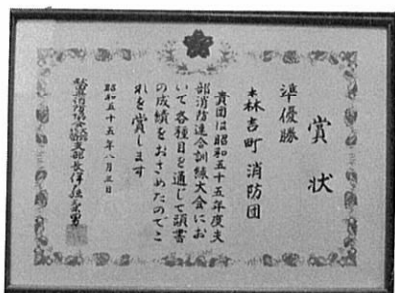 賞状
準優勝
森吉町消防団
貴団は昭和五十五年度支
部消防連合訓練大会にお
いて各種目を通じて頭書
の成績をおさめたのでこ
れを賞します
昭和五十五年八月三日